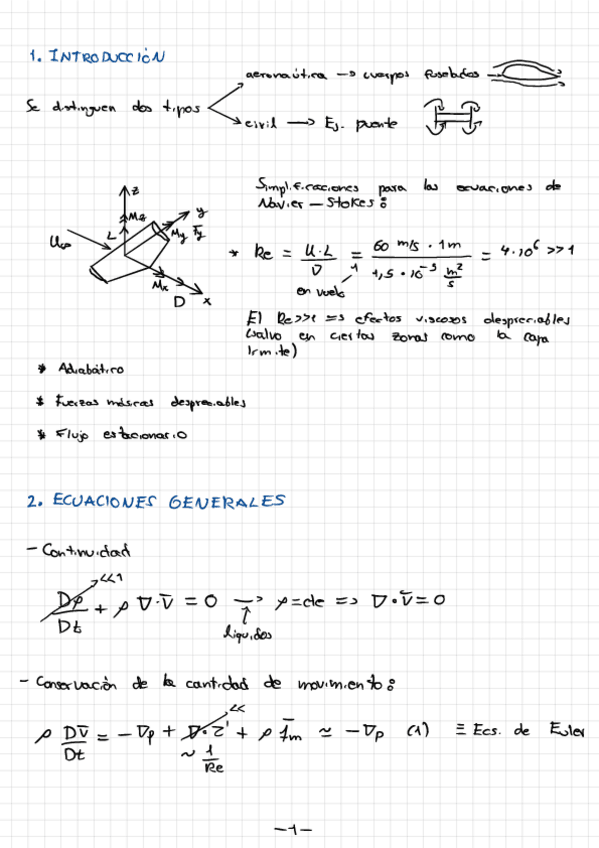 1. INTRODUCCIÓN
aeronaútica → cuerpos fuselados
Se distinguen dos tipos
civil → Ej. puente
Simplificaciones para las ecuaciones de
Navier – Stokes:
z
Mz
y
L
My Fy
U∞
Mx
D x
* Re = U·L / ν = 60 m/s · 1m / 1,5 · 10⁻⁵ m²/s = 4·10⁶ >> 1
en vuelo
El Re>>1 => efectos viscosos despreciables
(salvo en ciertas zonas como la capa
límite)
* Adiabático
* Fuerzas másicas despreciables
* Flujo estacionario
2. ECUACIONES GENERALES
- Continuidad
<<1
Dρ/Dt + ρ ∇·v̄ = 0 → ρ=cte => ∇·v̄=0
líquidos
- Conservación de la cantidad de movimiento:
<<
ρ Dv̄/Dt = -∇p + ∇·τ̄' + ρ f̄m ≃ -∇p (1) ≡ Ecs. de Euler
~ 1/Re
-1-